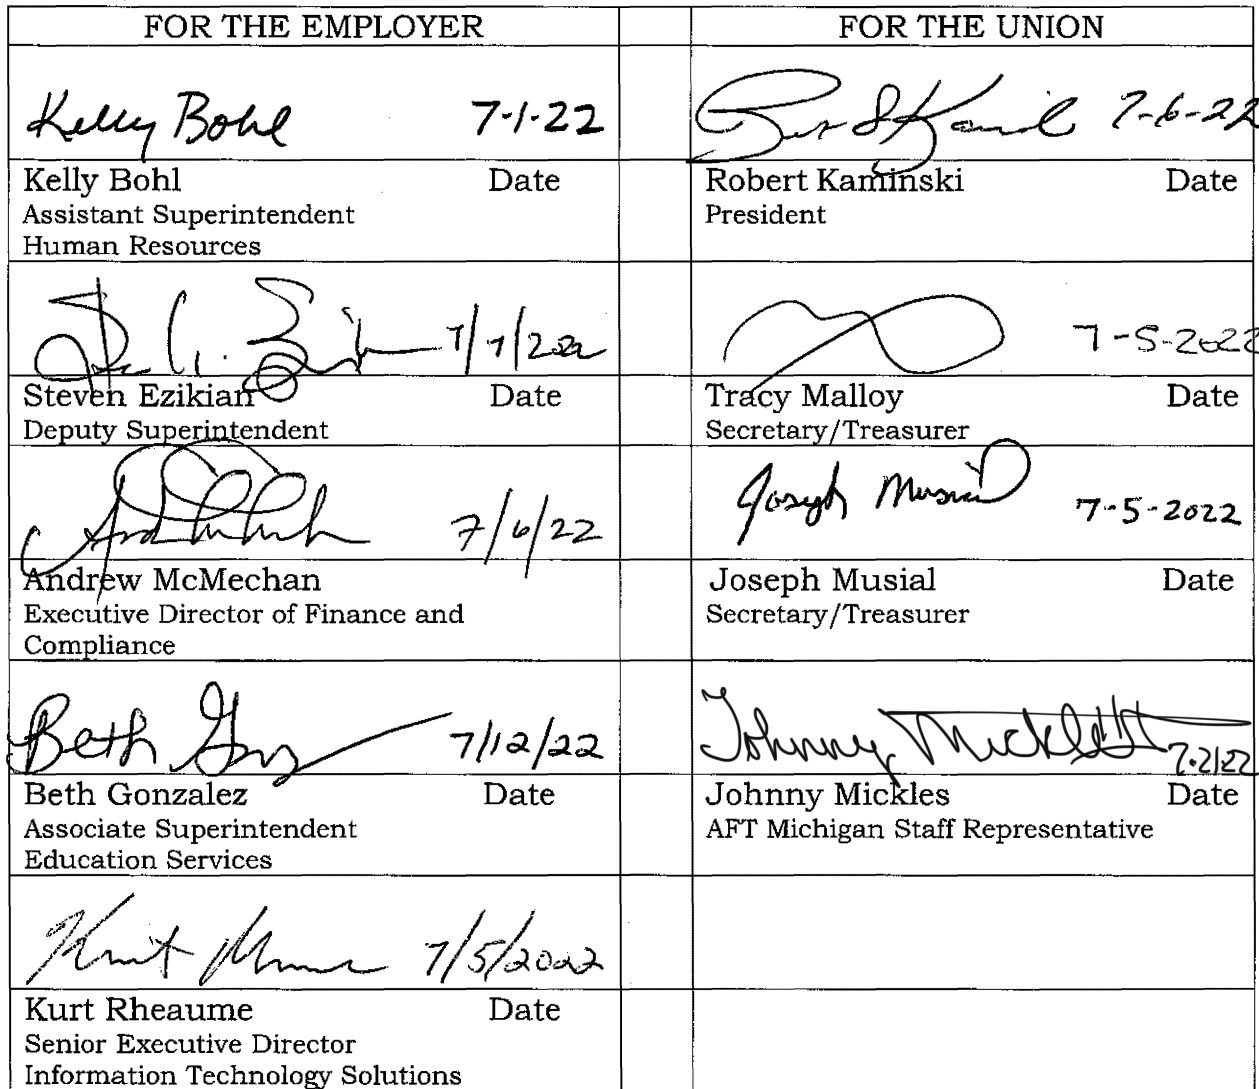 FOR THE EMPLOYER
FOR THE UNION
Kelly Bohl 7-1-22
7-6-22
Kelly Bohl Date
Assistant Superintendent
Human Resources
Robert Kaminski Date
President
7-5-2022
Steven Ezikian Date
Deputy Superintendent
Tracy Malloy Date
Secretary/Treasurer
7/6/22
Joseph Musial 7-5-2022
Andrew McMechan
Executive Director of Finance and
Compliance
Joseph Musial Date
Secretary/Treasurer
Beth 7/12/22
Johnny
Beth Gonzalez Date
Associate Superintendent
Education Services
Johnny Mickles Date
AFT Michigan Staff Representative
Kurt 7/5/2022
Kurt Rheaume Date
Senior Executive Director
Information Technology Solutions